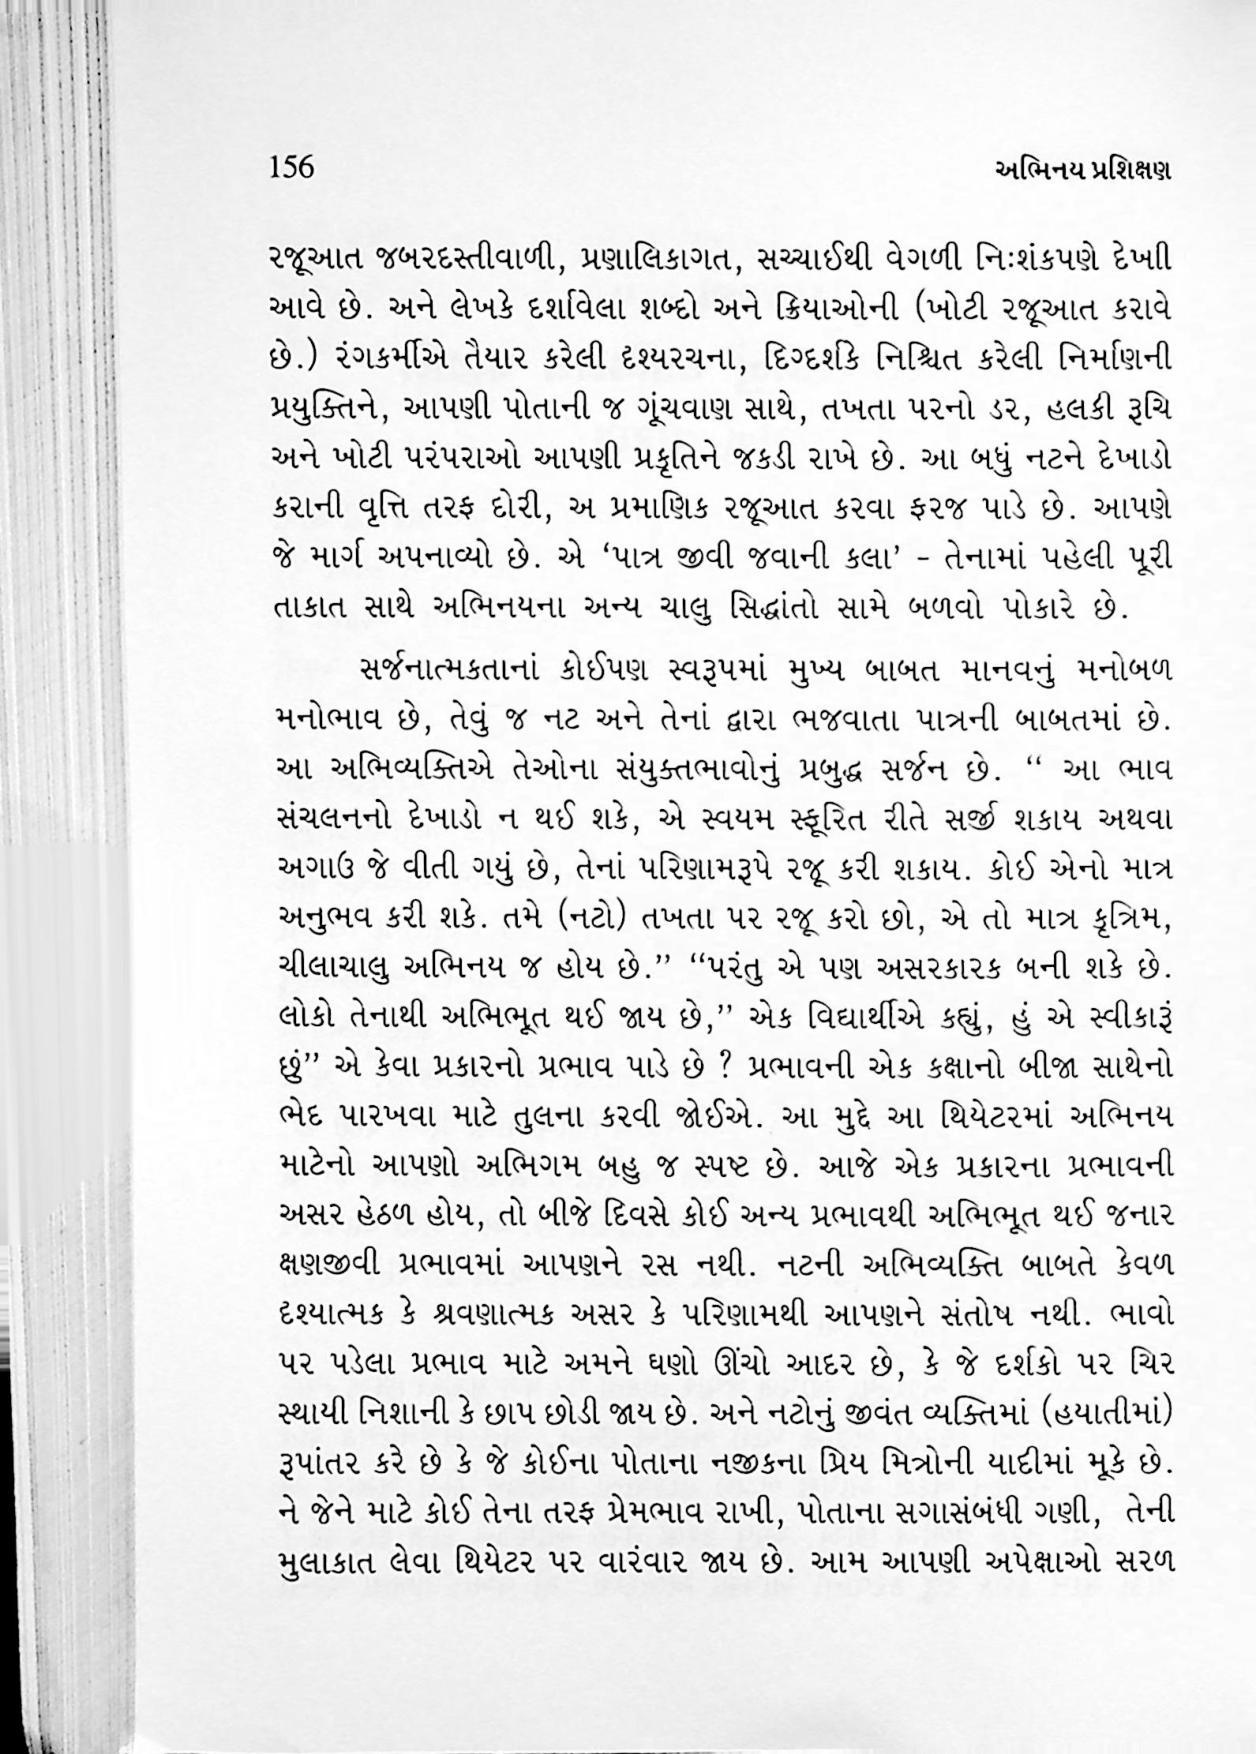 156 અભિનય પ્રશિક્ષણ
રજૂઆત જબરદસ્તીવાળી, પ્રણાલિકાગત, સચ્ચાઈથી વેગળી નિઃશંકપણે દેખાી
આવે છે. અને લેખકે દર્શાવેલા શબ્દો અને ક્રિયાઓની (ખોટી રજૂઆત કરાવે
છે.) રંગકર્મીએ તૈયાર કરેલી દૃશ્યરચના, દિગ્દર્શકે નિશ્ચિત કરેલી નિર્માણની
પ્રયુક્તિને, આપણી પોતાની જ ગૂંચવાણ સાથે, તખતા પરનો ડર, હલકી રૂચિ
અને ખોટી પરંપરાઓ આપણી પ્રકૃતિને જકડી રાખે છે. આ બધું નટને દેખાડો
કરાની વૃત્તિ તરફ દોરી, અ પ્રમાણિક રજૂઆત કરવા ફરજ પાડે છે. આપણે
જે માર્ગ અપનાવ્યો છે. એ ‘પાત્ર જીવી જવાની કલા’ - તેનામાં પહેલી પૂરી
તાકાત સાથે અભિનયના અન્ય ચાલુ સિદ્ધાંતો સામે બળવો પોકારે છે.
સર્જનાત્મકતાનાં કોઈપણ સ્વરૂપમાં મુખ્ય બાબત માનવનું મનોબળ
મનોભાવ છે, તેવું જ નટ અને તેનાં દ્વારા ભજવાતા પાત્રની બાબતમાં છે.
આ અભિવ્યક્તિએ તેઓના સંયુક્તભાવોનું પ્રબુદ્ધ સર્જન છે. “ આ ભાવ
સંચલનનો દેખાડો ન થઈ શકે, એ સ્વયમ સ્ફૂરિત રીતે સર્જી શકાય અથવા
અગાઉ જે વીતી ગયું છે, તેનાં પરિણામરૂપે રજૂ કરી શકાય. કોઈ એનો માત્ર
અનુભવ કરી શકે. તમે (નટો) તખતા પર રજૂ કરો છો, એ તો માત્ર કૃત્રિમ,
ચીલાચાલુ અભિનય જ હોય છે.” “પરંતુ એ પણ અસરકારક બની શકે છે.
લોકો તેનાથી અભિભૂત થઈ જાય છે,” એક વિદ્યાર્થીએ કહ્યું, હું એ સ્વીકારૂં
છું” એ કેવા પ્રકારનો પ્રભાવ પાડે છે ? પ્રભાવની એક કક્ષાનો બીજા સાથેનો
ભેદ પારખવા માટે તુલના કરવી જોઈએ. આ મુદ્દે આ થિયેટરમાં અભિનય
માટેનો આપણો અભિગમ બહુ જ સ્પષ્ટ છે. આજે એક પ્રકારના પ્રભાવની
અસર હેઠળ હોય, તો બીજે દિવસે કોઈ અન્ય પ્રભાવથી અભિભૂત થઈ જનાર
ક્ષણજીવી પ્રભાવમાં આપણને રસ નથી. નટની અભિવ્યક્તિ બાબતે કેવળ
દૃશ્યાત્મક કે શ્રવણાત્મક અસર કે પરિણામથી આપણને સંતોષ નથી. ભાવો
પર પડેલા પ્રભાવ માટે અમને ઘણો ઊંચો આદર છે, કે જે દર્શકો પર ચિર
સ્થાયી નિશાની કે છાપ છોડી જાય છે. અને નટોનું જીવંત વ્યક્તિમાં (હયાતીમાં)
રૂપાંતર કરે છે કે જે કોઈના પોતાના નજીકના પ્રિય મિત્રોની યાદીમાં મૂકે છે.
ને જેને માટે કોઈ તેના તરફ પ્રેમભાવ રાખી, પોતાના સગાસંબંધી ગણી, તેની
મુલાકાત લેવા થિયેટર પર વારંવાર જાય છે. આમ આપણી અપેક્ષાઓ સરળ